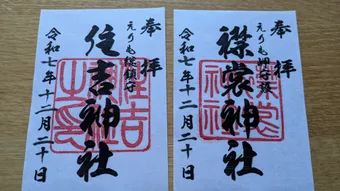 奉拝
えりも岬
襟裳神社
令和七年十二月二十日
奉拝
えりも総鎮守
住吉神社
令和七年十二月二十日